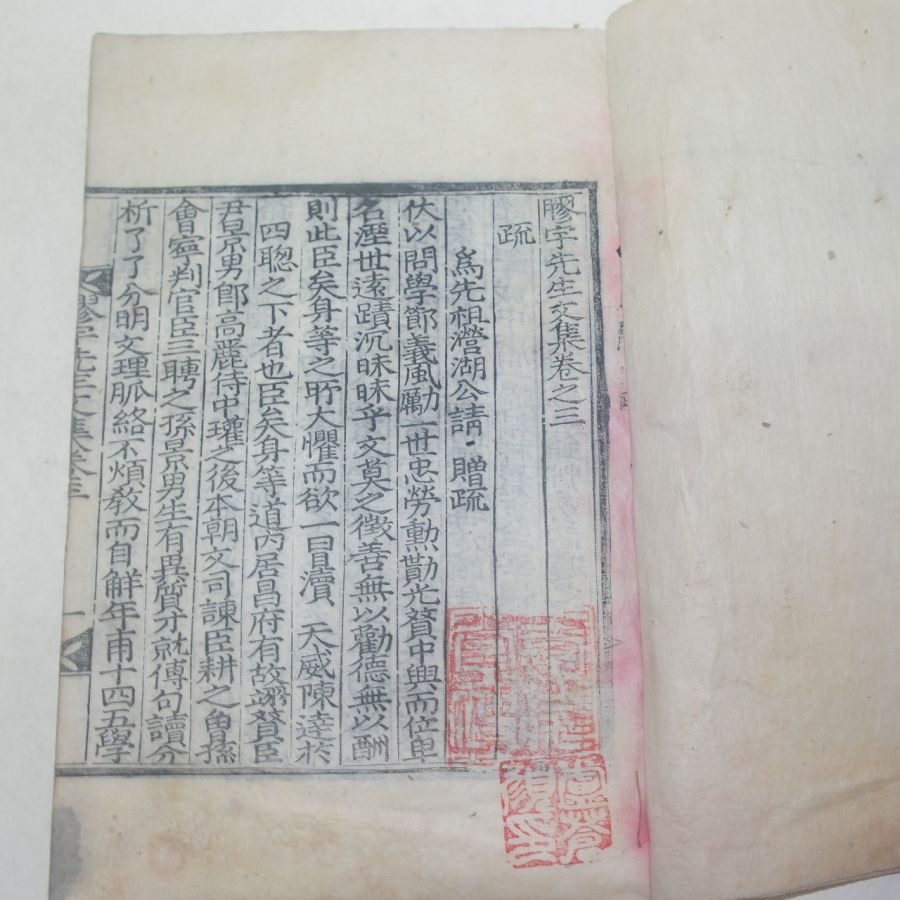 膠宇先生文集卷之三
疏
爲先祖瀯湖公請贈疏
伏以問學節義風勵一世忠勞勳勩光贊中興而位卑
名湮世遠蹟沉昧昧乎文莫之徵善無以勸德無以酬
則此臣矣身等之所大懼而欲一冒瀆 天威陳達於
四聰之下者也臣矣身等道內居昌府有故翊贊臣
尹景男卽高麗侍中瓘之後本朝文司諫臣耕之曾孫
會寧判官臣三聘之孫景男生有異質才就傅句讀分
析了了分明文理脈絡不煩敎而自解年甫十四五學
膠宇先生文集卷三 一